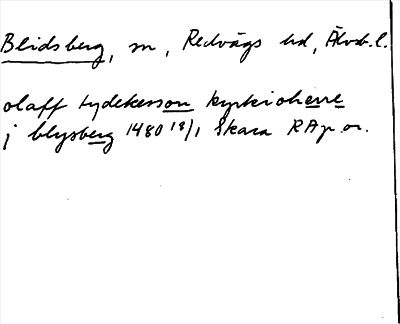 Blidsberg, sn, Redvägs hd, Älvsb. l.
olaff tydekesson kyrkioherre
j blysberg 1480 18/1 Skara RAp or.